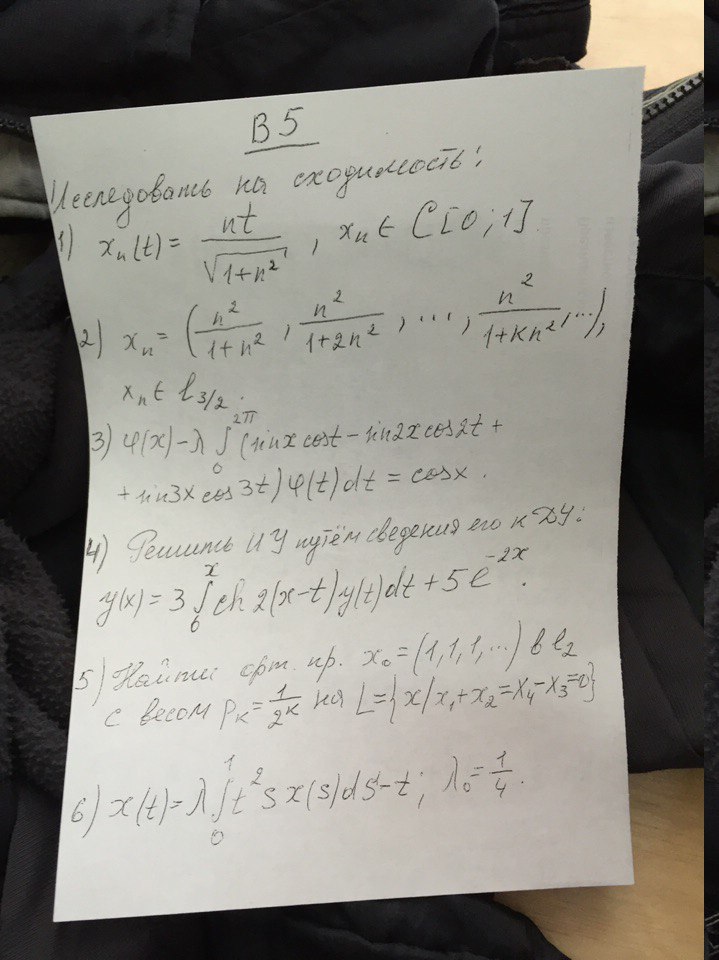 В 5
Исследовать на сходимость:
1) xₙ(t) = nt / √(1+n²), xₙ ∈ C[0;1].
2) xₙ = (n²/(1+n²), n²/(1+2n²), ..., n²/(1+kn²), ...),
xₙ ∈ l_{3/2}.
3) φ(x) − λ ∫₀^{2π} (sinx cost − sin2x cos2t +
+ sin3x cos3t) φ(t) dt = cosx.
4) Решить ИУ путём сведения его к ДУ:
y(x) = 3 ∫₀ˣ ch 2(x−t) y(t) dt + 5 e^{−2x}.
5) Найти орт. пр. x₀ = (1,1,1,...) в l₂
с весом pₖ = 1/2ᵏ на L = {x / x₁+x₂ = x₄−x₃ = 0}
6) x(t) = λ ∫₀¹ t² s x(s) ds − t; λ₀ = 1/4.